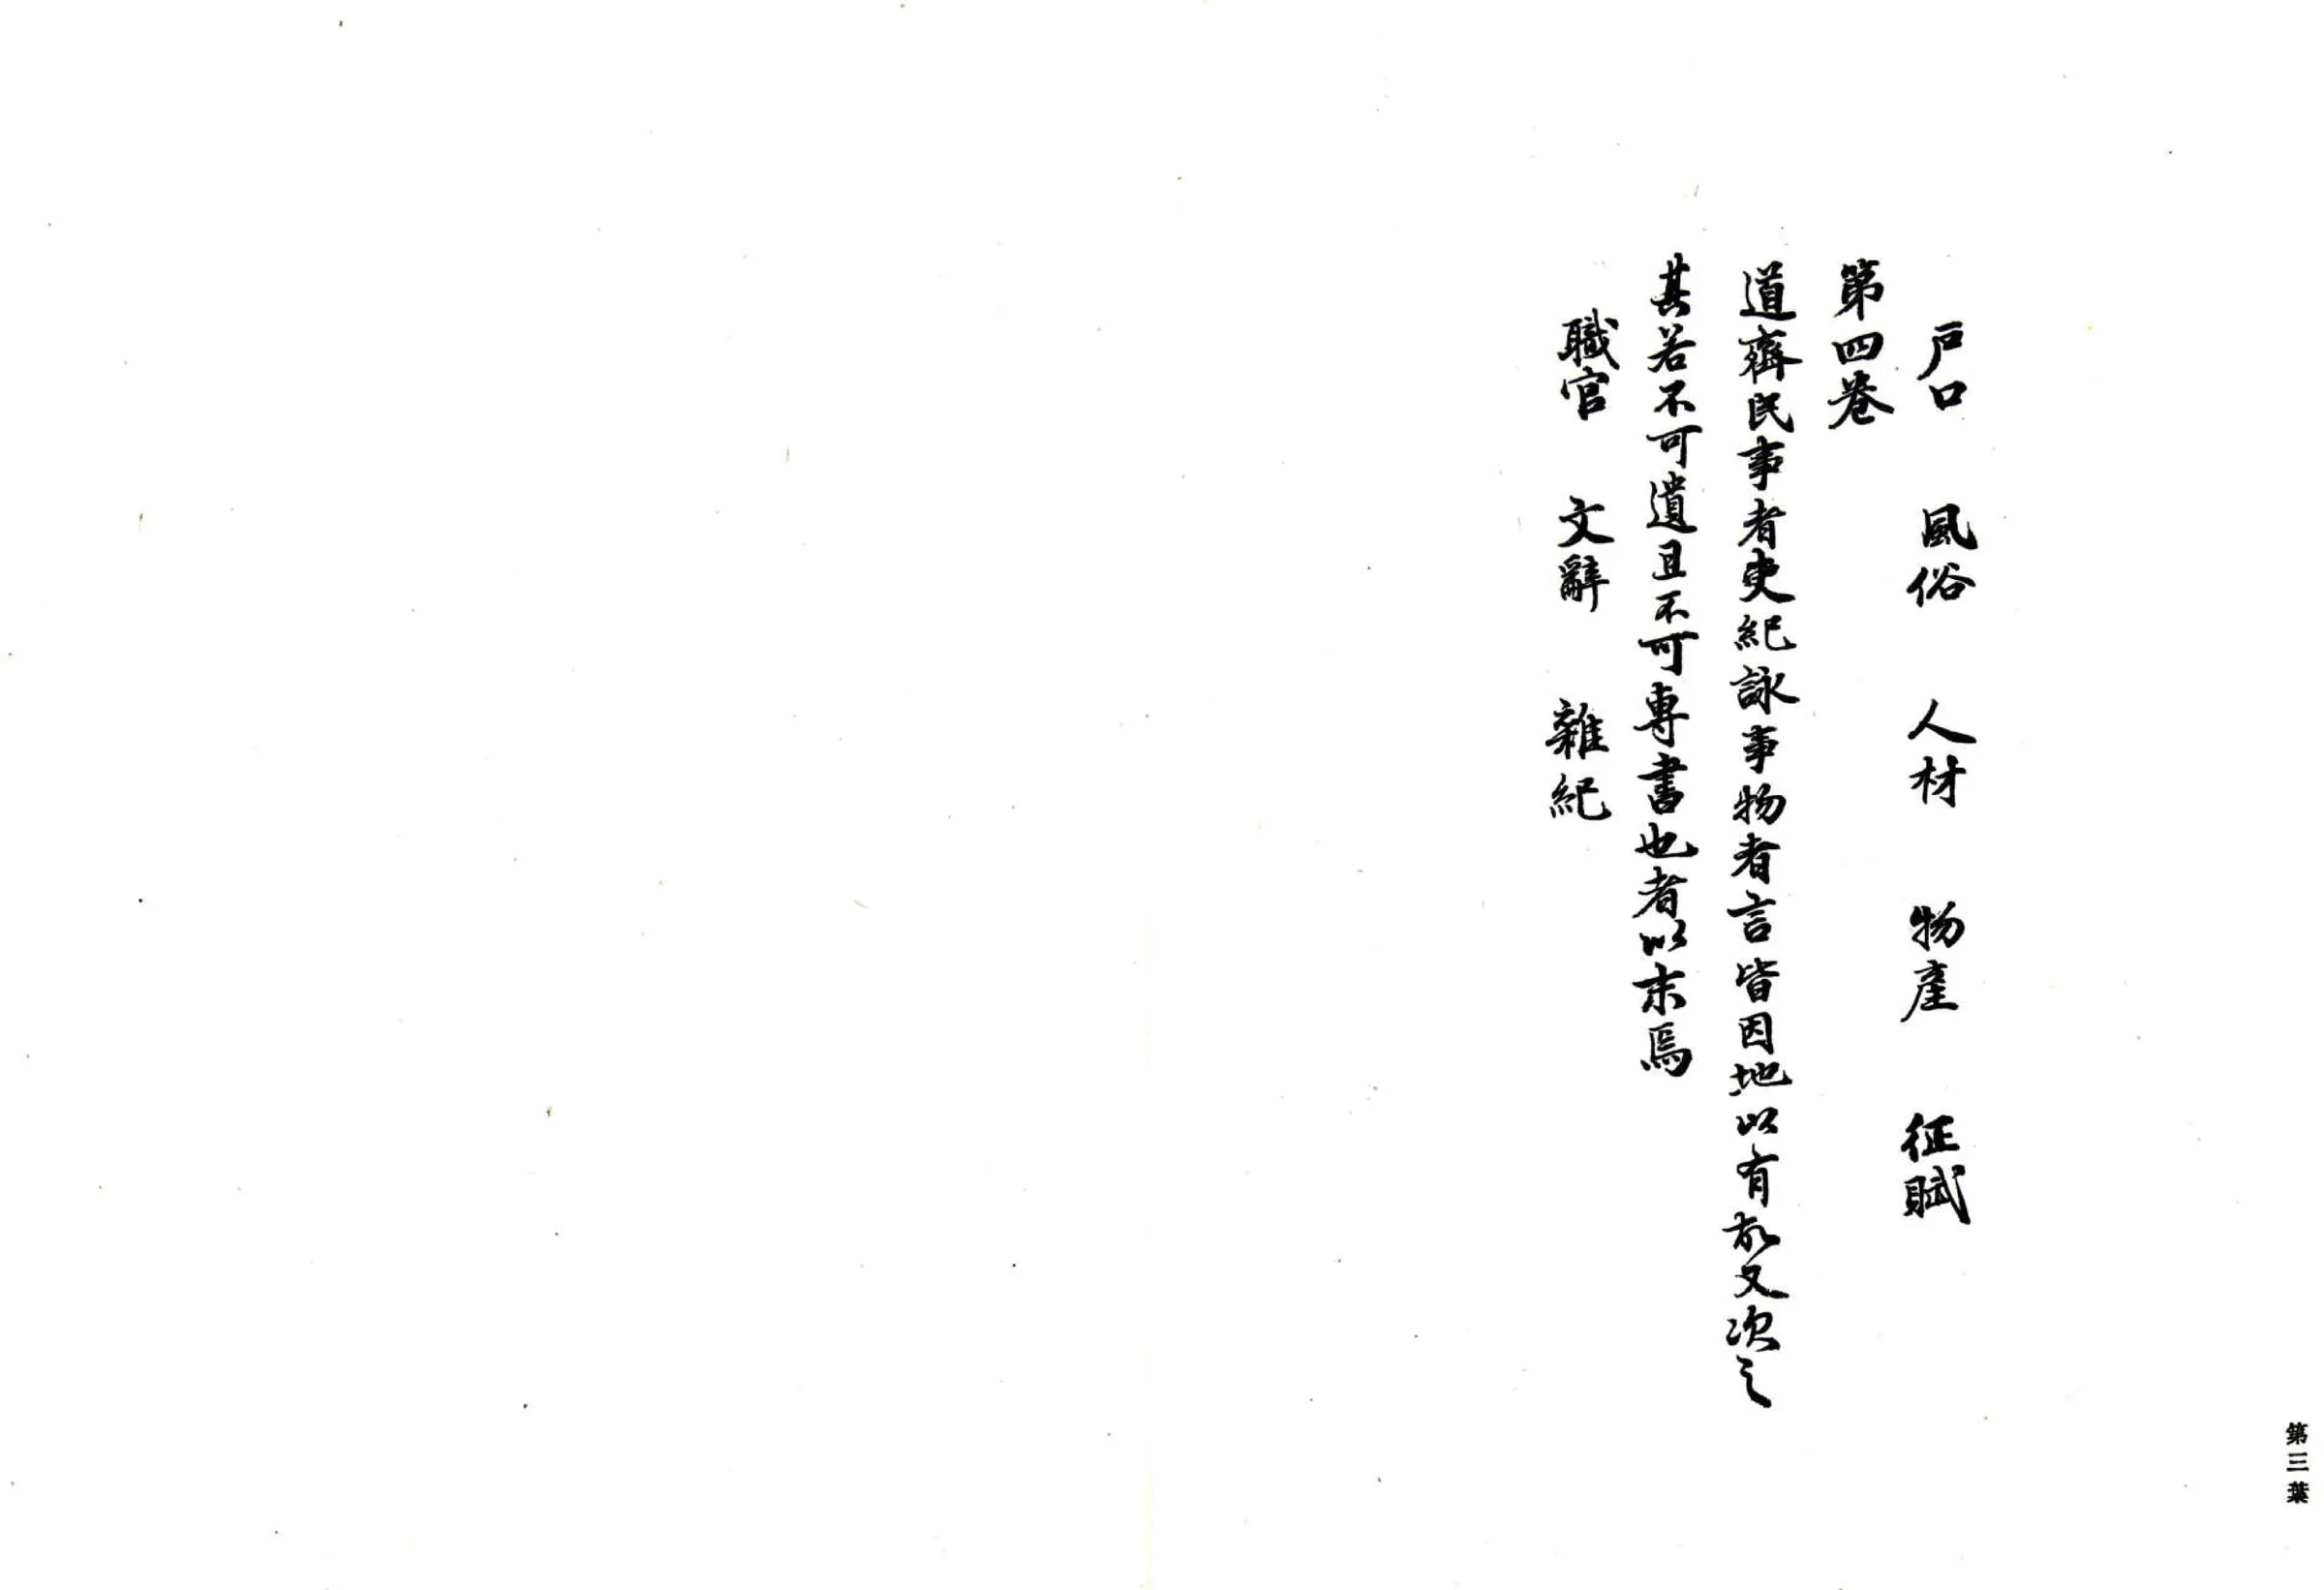 戶口　風俗　人材　物產　征賦
第四卷
道齊民事者史紀詠事物者言皆因地以有故又次之
其若不可遺且不可專書也者以末焉
職官　文辭　雜紀
第三葉